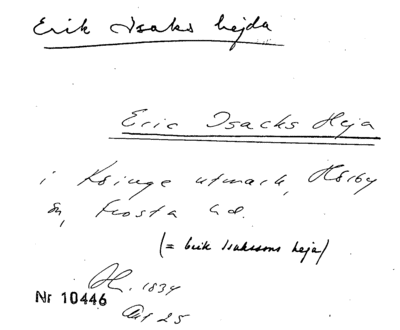 Erik Isaks hejda
Eric Isacks Heja
i Ksinge utmark, Hörby
sn, Frosta hd.
(= Erik Isakssons heja)
1834
Nr 10446
Akt 25